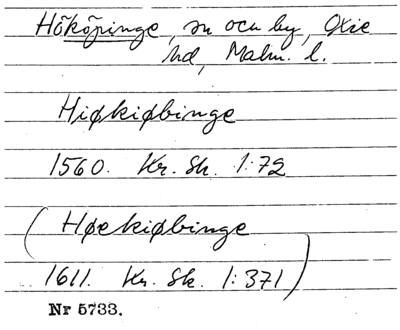 Hököpinge, sn och by, Oxie
hd, Malm. l.
Hiøkiøbinge
1560. Kr. Sk. 1:72
(Høekiøbinge
1611. Kr. Sk. 1:371)
Nr 5733.